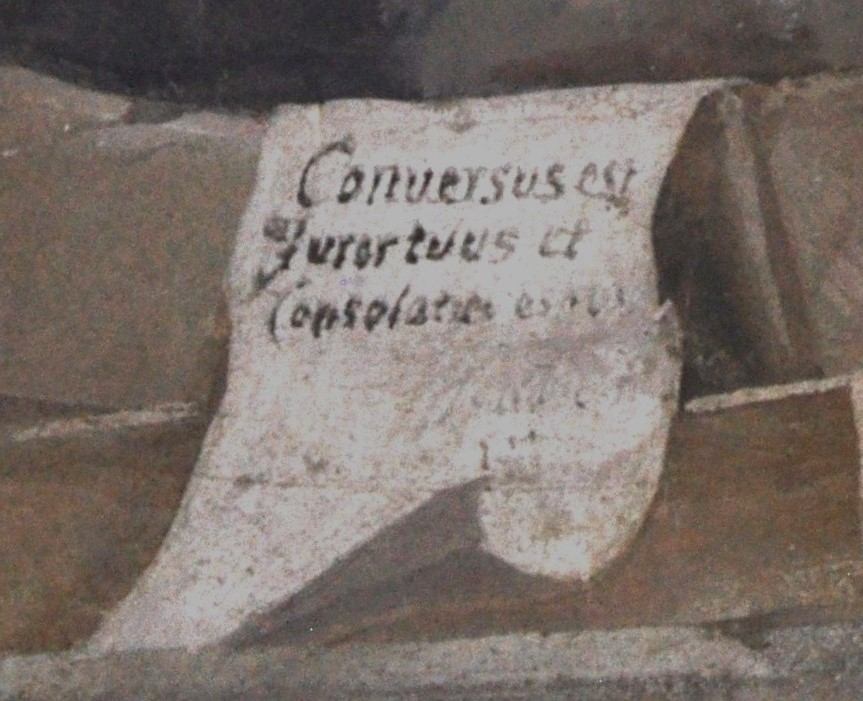 Conuersus est
furor tuus et
Consolatus es